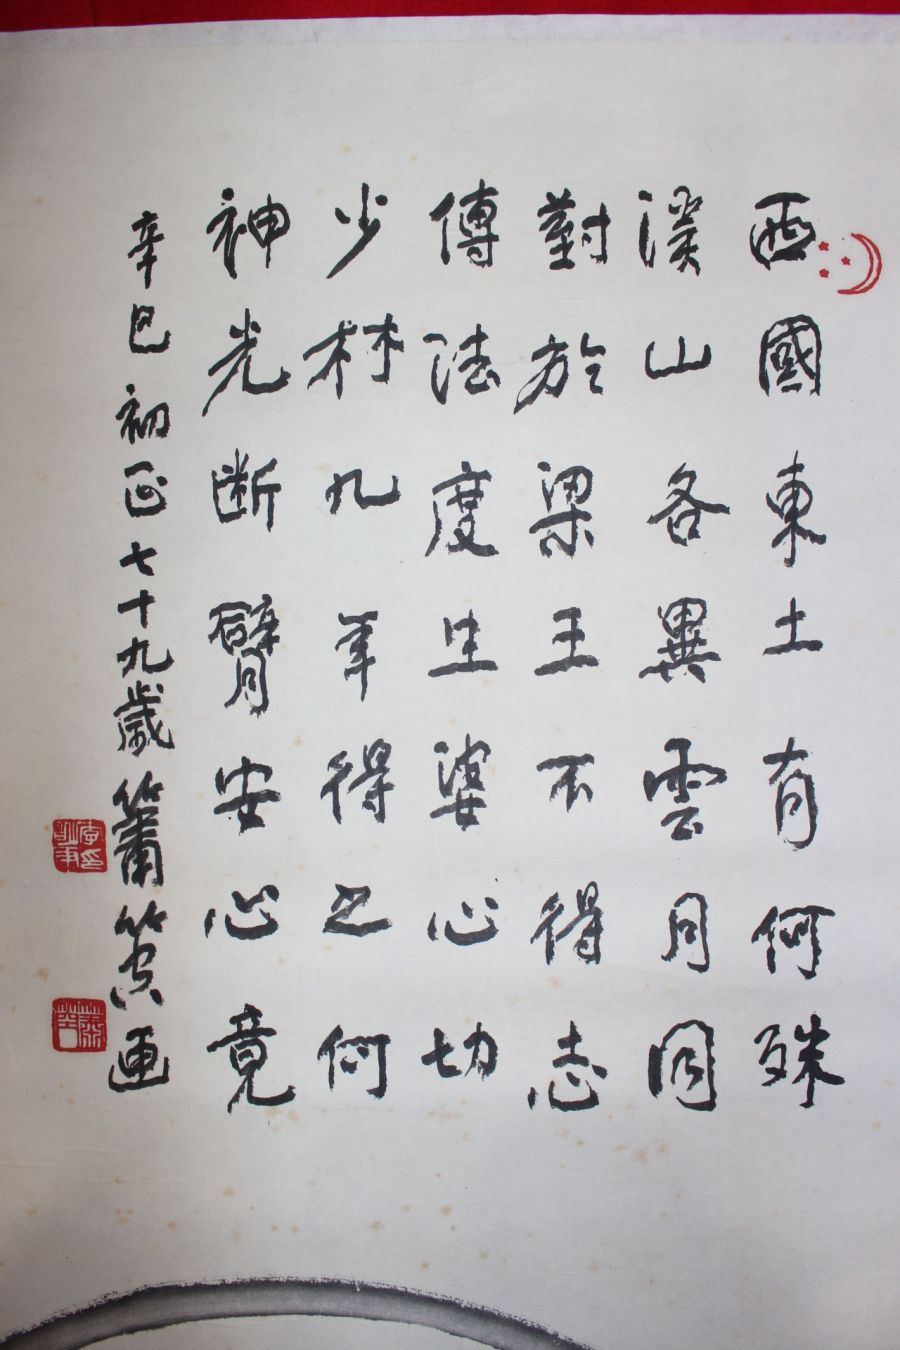 西國東土有何殊
溪山各異雲月同
對於梁王不得志
傳法度生婆心切
少林九年得之何
神光断臂安心竟
辛巳初正七十九歳簫笛画